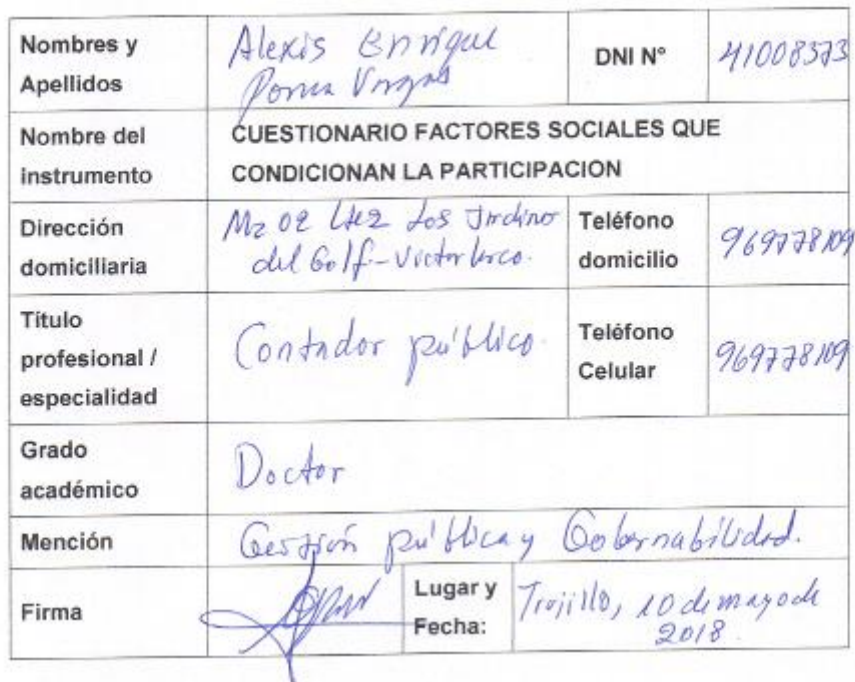 Nombres y Apellidos
Alexis Enrique
Poma Vargas
DNI N°
41008573
Nombre del instrumento
CUESTIONARIO FACTORES SOCIALES QUE
CONDICIONAN LA PARTICIPACION
Dirección domiciliaria
Mz 02 Lte2 Los Jardino
del Golf - Victor Larco.
Teléfono domicilio
969778109
Título profesional / especialidad
Contador público.
Teléfono Celular
969778109
Grado académico
Doctor
Mención
Gestión pública y Gobernabilidad.
Firma
Lugar y Fecha:
Trujillo, 10 de mayo de
2018.